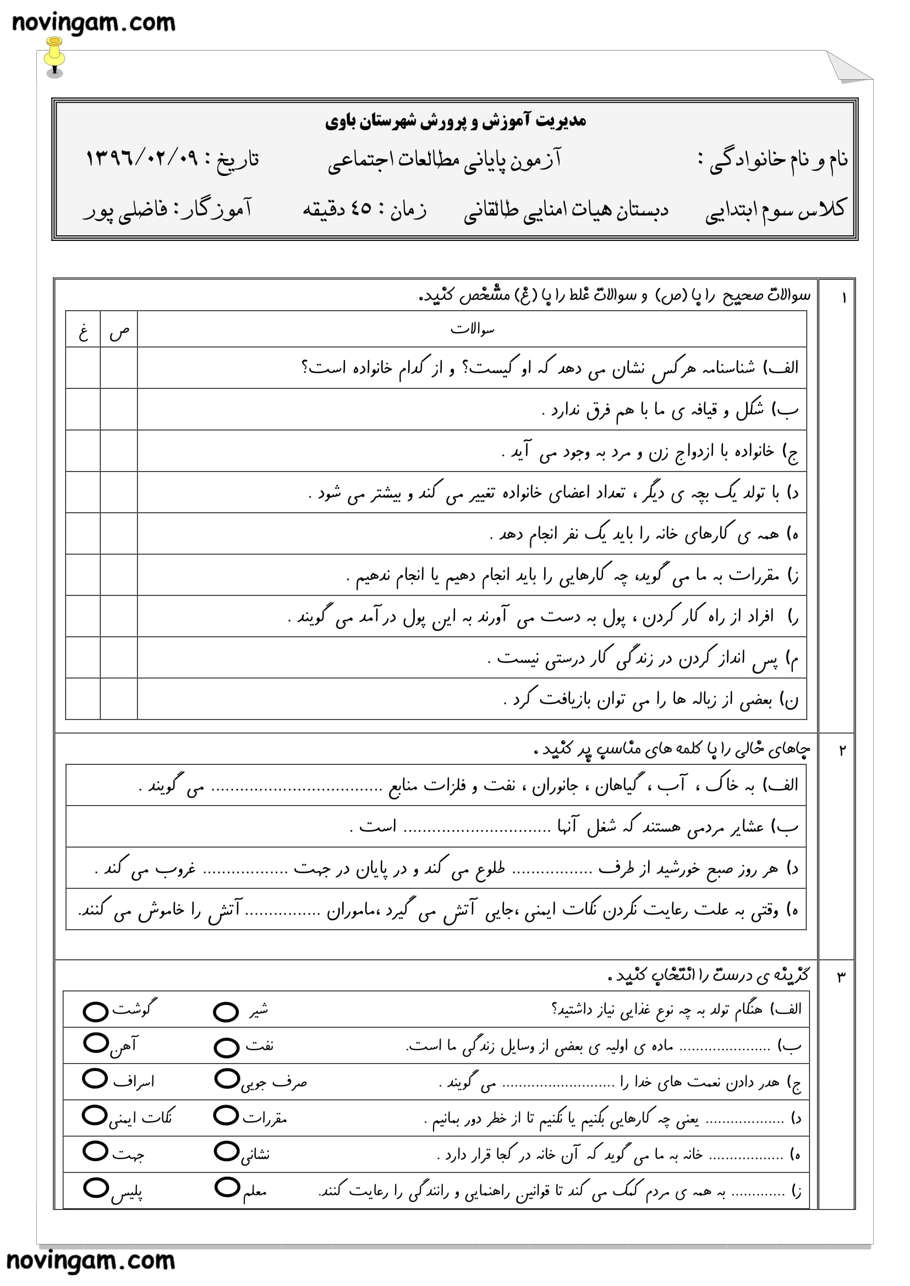 novingam.com
مدیریت آموزش و پرورش شهرستان باوی
نام و نام خانوادگی : آزمون پایانی مطالعات اجتماعی تاریخ : ۱۳۹۶/۰۲/۰۹
کلاس سوم ابتدایی دبستان هیات امنایی طالقانی زمان : ۴۵ دقیقه آموزگار: فاضلی پور
۱ سوالات صحیح را با (ص) و سوالات غلط را با (غ) مشخص کنید.
سوالات ص غ
الف) شناسنامه هرکس نشان می دهد که او کیست؟ و از کدام خانواده است؟
ب) شکل و قیافه ی ما با هم فرق ندارد .
ج) خانواده با ازدواج زن و مرد به وجود می آید .
د) با تولد یک بچه ی دیگر ، تعداد اعضای خانواده تغییر می کند و بیشتر می شود .
ه) همه ی کارهای خانه را باید یک نفر انجام دهد .
ز) مقررات به ما می گوید، چه کارهایی را باید انجام دهیم یا انجام ندهیم .
ر) افراد از راه کار کردن ، پول به دست می آورند به این پول درآمد می گویند .
م) پس انداز کردن در زندگی کار درستی نیست .
ن) بعضی از زباله ها را می توان بازیافت کرد .
۲ جاهای خالی را با کلمه های مناسب پر کنید .
الف) به خاک ، آب ، گیاهان ، جانوران ، نفت و فلزات منابع .................................... می گویند .
ب) عشایر مردمی هستند که شغل آنها ............................... است .
د) هر روز صبح خورشید از طرف ................. طلوع می کند و در پایان در جهت .................. غروب می کند .
ه) وقتی به علت رعایت نکردن نکات ایمنی ،جایی آتش می گیرد ،ماموران ................آتش را خاموش می کنند.
۳ گزینه ی درست را انتخاب کنید .
الف) هنگام تولد به چه نوع غذایی نیاز داشتید؟ شیر گوشت
ب) ...................... ماده ی اولیه ی بعضی از وسایل زندگی ما است. نفت آهن
ج) هدر دادن نعمت های خدا را ........................... می گویند . صرف جویی اسراف
د) ................... یعنی چه کارهایی بکنیم یا نکنیم تا از خطر دور بمانیم . مقررات نکات ایمنی
ه) .................. خانه به ما می گوید که آن خانه در کجا قرار دارد . نشانی جهت
ز) ............. به همه ی مردم کمک می کند تا قوانین راهنمایی و رانندگی را رعایت کنند. معلم پلیس
novingam.com